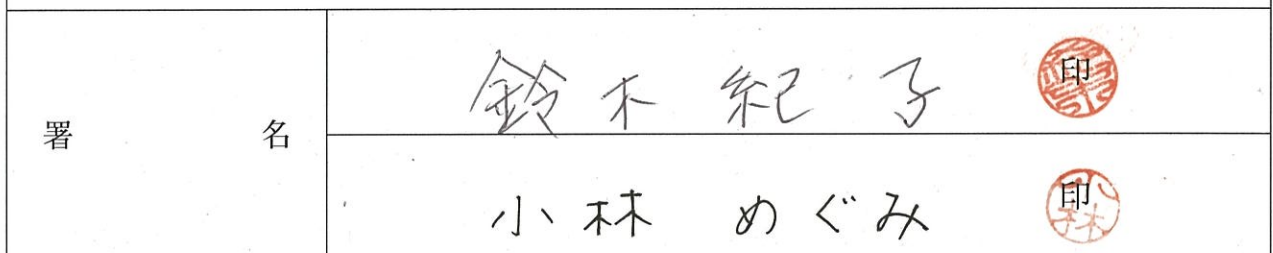 署名
鈴木 紀子 印
小林 めぐみ 印
小林